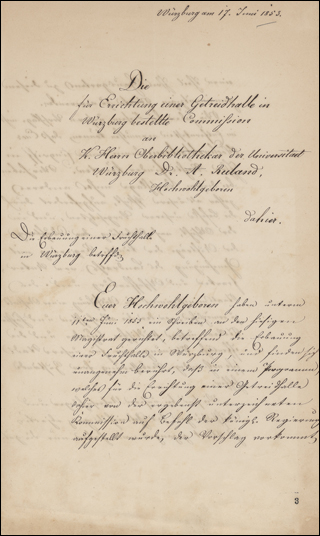 Würzburg am 17. Juni 1853.
Die
für Errichtung einer Getreidhalle in
Würzburg bestellte Commission
an
K. Herrn Oberbibliothekar der Universitaet
Würzburg Dr. A. Ruland,
Hochwohlgeboren
dahier.
Die Erbauung einer Fruchthalle
in Würzburg betreffd.
Euer Hochwohlgeboren haben unterm
11ten Juni 1853 ein Schreiben an den hiesigen
Magistrat gerichtet, betreffend die Erbauung
einer Fruchthalle in Würzburg und finden sich
unangenehm berührt, daß in einem Programm,
welches für die Errichtung einer Getreidhalle
schon von der ergebenst unterzeichneten
Kommission auf Befehl der königl. Regierung
aufgestellt wurde, der Vorschlag vorkommt,
3